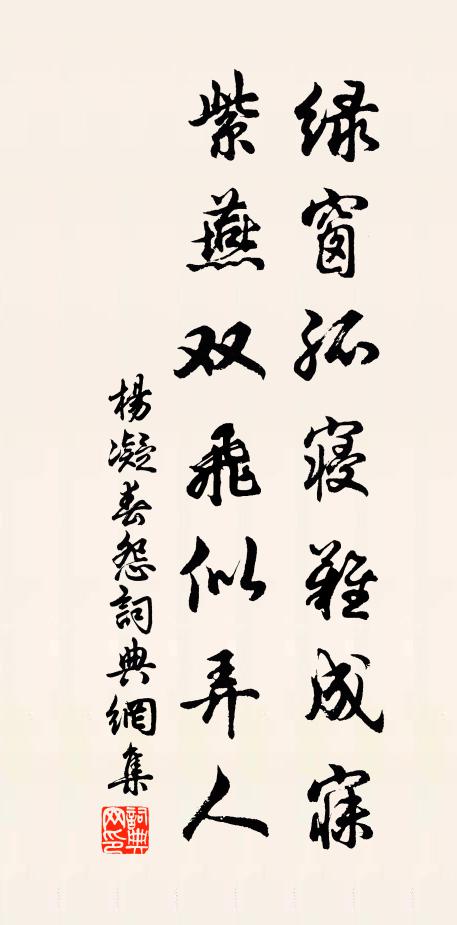 绿窗孤寝难成寐
紫燕双飛似弄人
楊凝春怨詞典網集
詞典网印